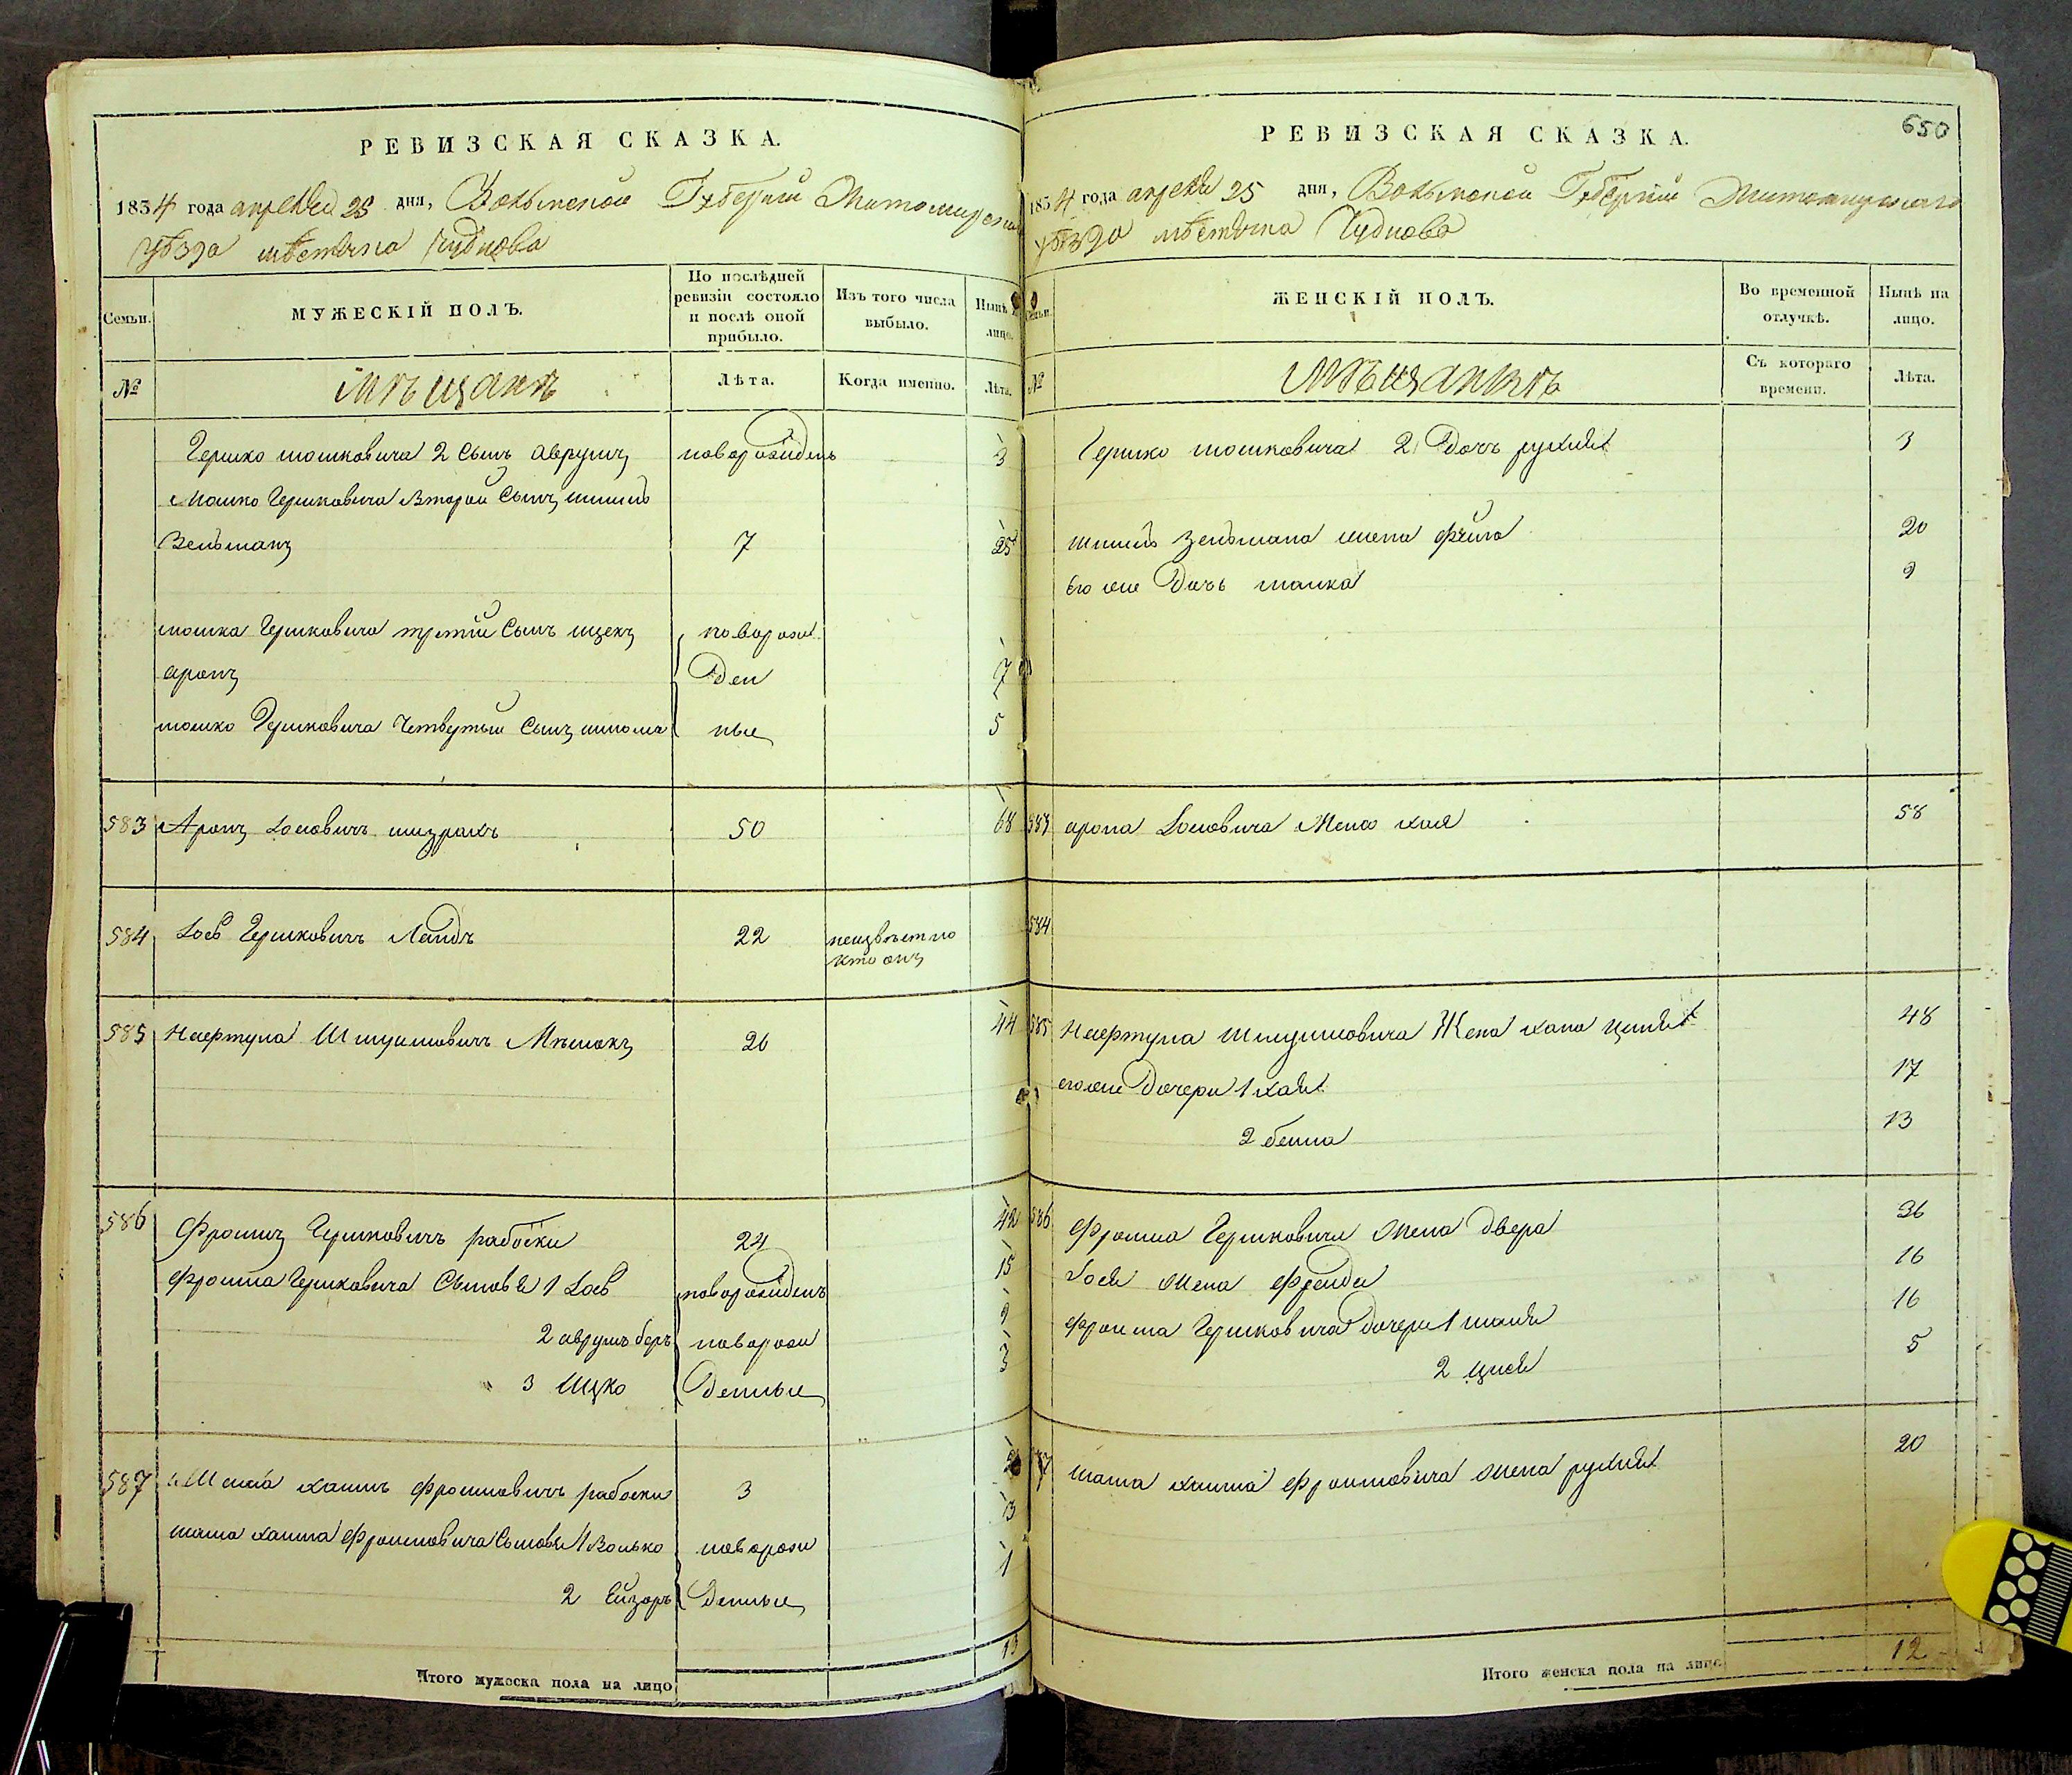 РЕВИЗСКАЯ СКАЗКА.
1834 года апреля 25 дня, Волынской Губернии Житомирскаго
уѣзда мѣстечка Чуднова
Семьи.
МУЖЕСКІЙ ПОЛЪ.
По послѣдней ревизіи состояло и послѣ оной прибыло.
Изъ того числа выбыло.
Нынѣ на лицо.
№
мѣщанъ
Лѣта.
Когда именно.
Лѣта.
Гершко мошковича 2 сынъ аврумъ новорожденъ 3
Мошко Гершковича второй сынъ
Зельманъ 7 25
мошка Гершковича третій сынъ ицекъ новорож
аронъ ден 7
мошко Гершковича четвертый сынъ ные 5
583 Аронъ Лейбовичъ 50 68
584 Лейб Гершковичъ 22 неизвѣстно
кто онъ
585 Шмулиовичъ 26 44
586 Фроимъ Гершковичъ рабойки 24 42
Фроима Гершковича сыновья 1 Лейб новорожденъ 15
2 аврумъ беръ новорож 9
3 Ицко денные 3
587 хаимъ Фроимовичъ рабойки 3
хаима Фроимовича сыновья 1 Волько новорож 3
2 Ейзоръ денные 1
Итого мужеска пола на лицо
650
РЕВИЗСКАЯ СКАЗКА.
1834 года апреля 25 дня, Волынской Губерніи Житомирскаго
уѣзда мѣстечка Чуднова
Семьи.
ЖЕНСКІЙ ПОЛЪ.
Во временной отлучкѣ.
Нынѣ на лицо.
№
Мѣщанкъ
Съ котораго времени.
Лѣта.
Гершко мошковича 2 дочь рухля 3
зельмана жена фейга 20
его же дочь малка
583 арона Лейбовича жена хая 58
584
585 Шмулиовича Жена хана 48
его же дочери 1 хая 17
2 бейла 13
586 Фроима Гершковича жена двера 36
Лейби жена фрейда 16
Фроима Гершковича дочери 1 16
2 5
587 хаима Фроимовича жена рухля 20
Итого женска пола на лицо 12